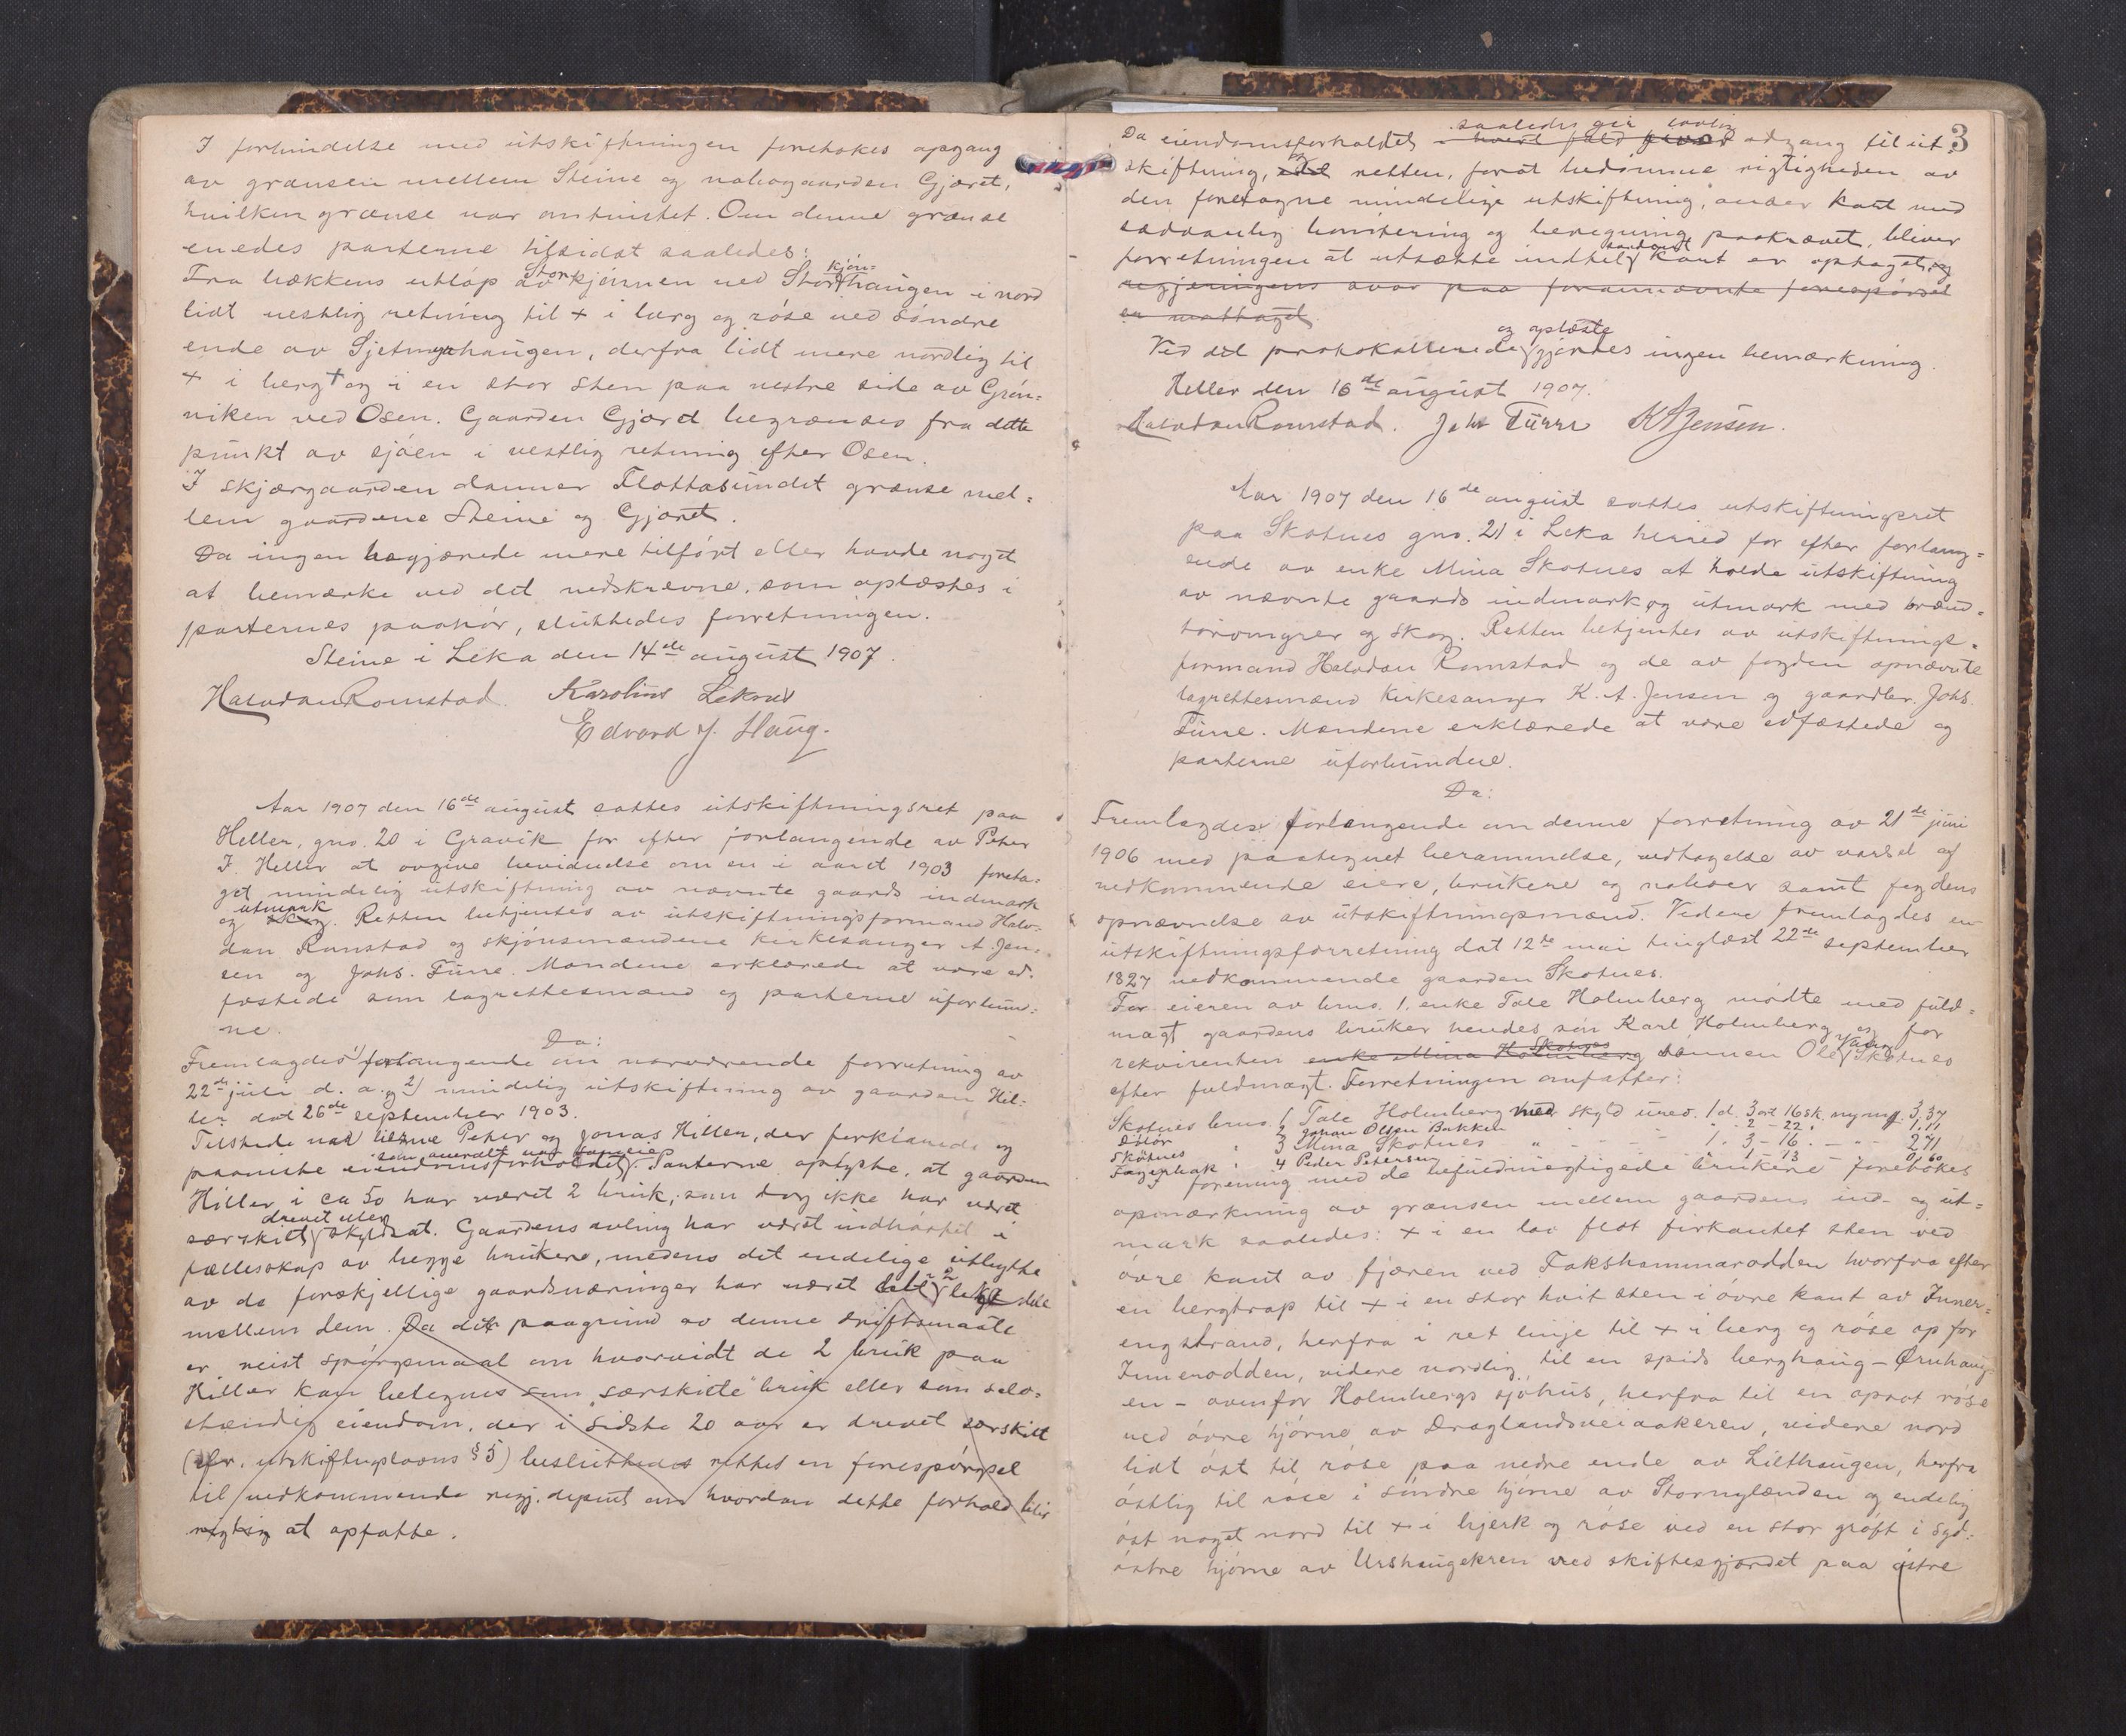 I forbindelse med utskiftningen foretokes opgang
av grænsen mellem Steine og nabogaarden Gjæret,
hvilken grænse var omtvistet. Om denne grænse
enedes parterne tilsidst saaledes:
Fra bækkens utløp av Storkjønnen ved Storkjønhaugen i nord
lidt vestlig retning til + i berg og røse ved søndre
ende av Sjetmyrhaugen, derfra lidt mere nordlig til
+ i berg og + i en stor sten paa vestre side av Grøn=
viken ved Osen. Gaarden Gjæret begrænses fra dette
punkt av sjøen i vestlig retning efter Osen.
I skjærgaarden danner Flottasundet grænse mel=
lem gaardene Steine og Gjæret.
Da ingen begjærede mere tilført eller havde noget
at bemærke ved det nedskrevne, som oplæstes i
parternes paahør, sluttedes forretningen.
Steine i Leka den 14de august 1907.
Halvdan Romstad. Karolius Leknes
Edvard J. Haug.
Aar 1907 den 16de august sattes utskiftningsret paa
Heller, gno. 20 i Gravik for efter forlangende av Peter
J. Heller at avgive bevidnelse om en i aaret 1903 foreta=
get mindelig utskiftning av nævnte gaards indmark
og utmark. Retten betjentes av utskiftningsformand Halv=
dan Romstad og skjønsmændene kirkesanger A. Jen=
sen og Johs. Fürre. Mændene erklærede at være ed=
fæstede som lagrettesmænd og parterne uforbun=
ne.
Da:
Fremlagdes 1) forlangende om nærværende forretning av
22de juli d. a. og 2) mindelig utskiftning av gaarden Hel=
ler dat 26de september 1903.
Tilstede var eierne Peter og Jonas Hiller, der forklarede og
paaviste eiendomsforholdet, som overalt var samme. Parterne oplyste, at gaarden
Hiller i ca 50 har været 2 bruk, som dog ikke har været
særskilt drevet eller skyldsat. Gaardens avling har været indhøstet i
fællesskap av begge brukere, medens det endelige utbytte
av de forskjellige gaardsnæringer har været delt i 2 like dele
mellem dem. Da det paagrund av denne driftsmaate
er reist spørgsmaal om hvorvidt de 2 bruk paa
Hiller kan betegnes som "særskilte" bruk eller som selv=
stændig eiendom, der i sidste 20 aar er drevet særskilt
(cfr. utskiftngslovens § 5) besluttedes rettet en forespørgsel
til vedkommende regj. depmt om hvordan dette forhold blir
rigtig at opfatte.
3
Da eiendomsforholdet saaledes gir lovlig adgang til ut=
skiftning, retten, forat bedømme rigtigheden av
den foretagne mindelige utskiftning, anser kart med
sædvanlig bonitering og beregning paakrævet, bliver
forretningen at utsætte indtil saadant kart er optaget, og
regjeringens svar paa forannævnte forespørsel
er mottaget.
Ved det protokollerede og oplæste gjordes ingen bemærkning.
Heller den 16de august 1907.
Halvdan Romstad. Johs Fürre K A Jensen.
Aar 1907 den 16de august sattes utskiftningsret
paa Skotnes gno. 21 i Leka herred for efter forlang=
ende av enke Mina Skotnes at holde utskiftning
av nævnte gaards indmark og utmark med brænd=
torvmyrer og skog. Retten betjentes av utskiftnings=
formand Halvdan Romstad og de av fogden opnævnte
lagrettesmænd Kirkesanger K. A. Jensen og gaardbr. Johs.
Fürre. Mændene erklærede at være edfæstede og
parterne uforbundne.
Da:
Fremlagdes forlangende om denne forretning av 21de juni
1906 med paategnet berammelse, vedtagelse av varsel af
vedkommende eiere, brukere og naboer samt fogdens
opnævnelse av utskiftningsmænd. Videre fremlagdes en
utskiftningsforretning dat 12te mai tinglæst 22de september
1827 vedkommende gaarden Skotnes.
For eieren av brno. 1, enke Tale Holmberg mødte med fuld=
magt gaardens bruker hendes søn Karl Holmberg, og for
rekvirenten enke Mina Holmberg Skotnes sønnen Ole Skotnes
efter fuldmagt. Forretningen omfatter:
Skotnes brno. 1 Tale Holmberg med skyld urev. 1 d. 3 ort 16 sk. ny m. 3,37
2 Johan Olsen Bakken " - 2 - 22 1,11
Skotnes " 3 Mina Skotnes " 1. 3 - 16. 2,71
Fagerbak " 4 Peder Petersen 1 - 13 " 0,60
I forening med de befuldmægtigede brukere foretokes
opmærkning av grænsen mellem gaardens ind- og ut=
mark saaledes: + i en lav flat firkantet sten ved
øvre kant av fjæren ved Fakshammarodden hvorfra efter
en bergtrap til + i en stor hvit sten i øvre kant av Inner=
engstrand, herfra i ret linje til + i berg og røse op for
Innerodden, videre nordlig til en spids berghaug - Ørnhaug=
en - ovenfor Holmbergs sjøhus, herfra til en opsat røse
ved øvre hjørne av Draglandsveiaakeren, videre nord
lidt øst til røse paa nedre ende av Litlhaugen, herfra
østlig til røse i søndre hjørne av Stornylænden og endelig
øst noget nord til + i bjerk og røse ved en stor grøft i syd=
østre hjørne av Urshaugekren ved skiftesgjærdet paa østre